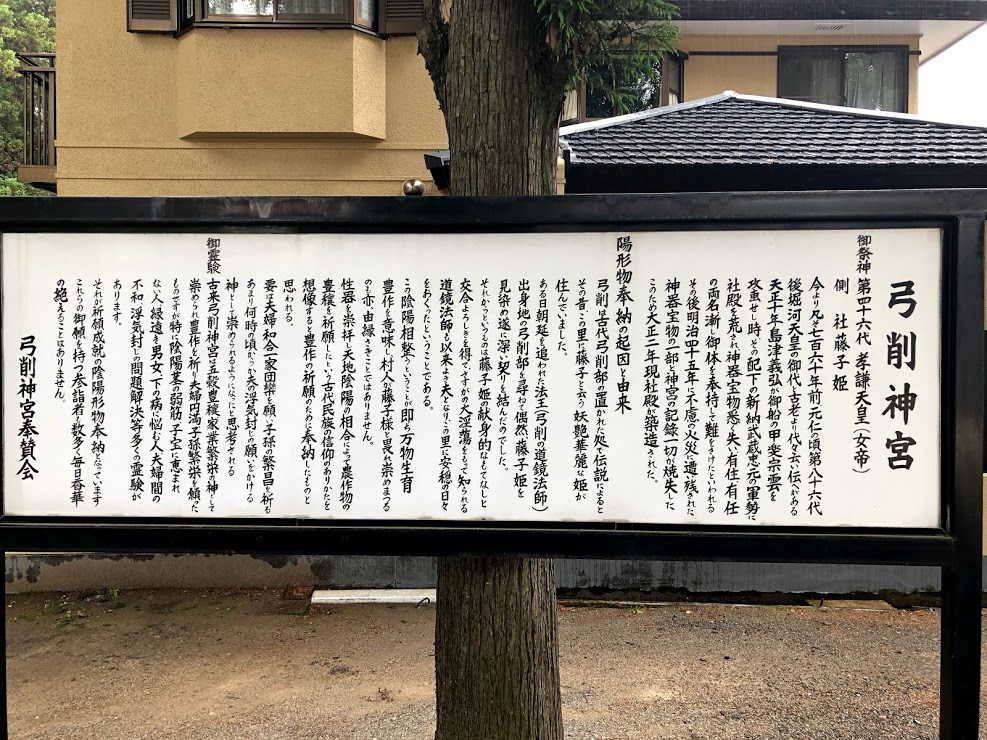 弓削神宮
御祭神 第四十六代 孝謙天皇(女帝)
側 社 藤子姫
今より凡そ七百六十年前元仁の頃第八十六代
後堀河天皇の御代古老より代々云い伝へがある
天正十年島津義弘が御船の甲斐宗雲を
攻童せし時、その配下の新納武蔵忠元の軍勢に
社殿を荒され神器宝物悉く失い有住有任
の両名漸く御体を奉持して難をさけたといわれる
その後明治四十五年、不慮の火災に遭い残された
神器宝物の一部と神宮の記録一切が焼失した
このため大正三年現社殿が築造された。
陽形物奉納の起因と由来
弓削は古代弓削部の置かれた処で伝説によると
その昔この里に藤子と云う妖艶華麗な姫が
住んでいました。
ある日朝廷を追われた法王(弓削の道鏡法師)
出身地の弓削部を尋ねて偶然、藤子姫を
見染め遂に深い契りを結んだのでした。
それからというものは藤子姫の献身的なもてなしと
交合よろしきを得てさすがの大淫蕩をもって知られる
道鏡法師も以来よき夫となりこの里に安穏の日々
をおくったということである。
この陰陽相整うということが即ち万物生育
豊作を意味し村人が藤子様と畏れ崇めまつる
のも亦由縁なきことではありません。
性器を崇拝し天地陰陽の相合によって農作物の
豊穣を祈願したという古代民族の信仰のありかたを
想像すると豊作の祈願のために奉納したものと
思われる。
要は夫婦和合一家団欒を願い子孫の繁昌を祈る
あまり何時の頃からか夫の浮気封じの願いをかける
神として崇められるようになったと思考される
御霊験
古来弓削神宮は五穀豊穣家業繁栄の神として
崇められ豊作を祈り夫婦円満子孫繁栄を願った
ものですが特に陰陽茎の弱筋子宝に恵まれ
ない人縁遠き男女、下の病に悩む人夫婦間の
不和、浮気封じの問題解決等多くの霊験が
あります。
それが祈願成就の陰陽形物奉納となっています
これらの御願を持つ参詣者も数多く毎日香華
の絶えることはありません。
弓削神宮奉賛会